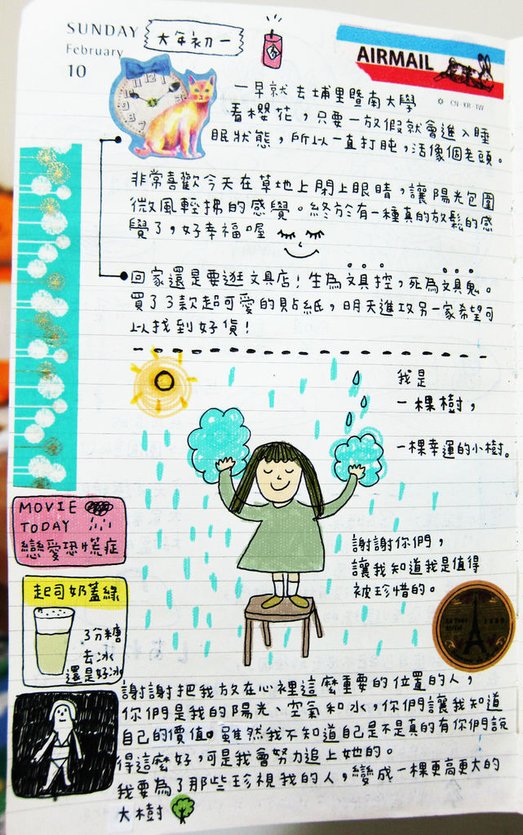 SUNDAY
February
10
大年初一
AIRMAIL
CN·KR·TW
一早就去埔里暨南大學
看櫻花，只要一放假就會進入睡
眠狀態，所以一直打盹，活像個老頭。
非常喜歡今天在草地上閉上眼睛，讓陽光包圍
微風輕拂的感覺。終於有一種真的放鬆的感
覺了，好幸福喔
回家還是要逛文具店！生為文具控，死為文具鬼。
買了3款超可愛的貼紙，明天進攻另一家希望可
以找到好貨！
我是
一棵樹，
一棵幸運的小樹。
MOVIE
TODAY
戀愛恐慌症
謝謝你們，
讓我知道我是值得
被珍惜的。
起司奶蓋綠
3分糖
去冰
還是好冰
謝謝把我放在心裡這麼重要的位置的人，
你們是我的陽光、空氣和水，你們讓我知道
自己的價值。雖然我不知道自己是不是真的有你們說
得這麼好，可是我會努力追上她的。
我要為了那些珍視我的人，變成一棵更高更大的
大樹